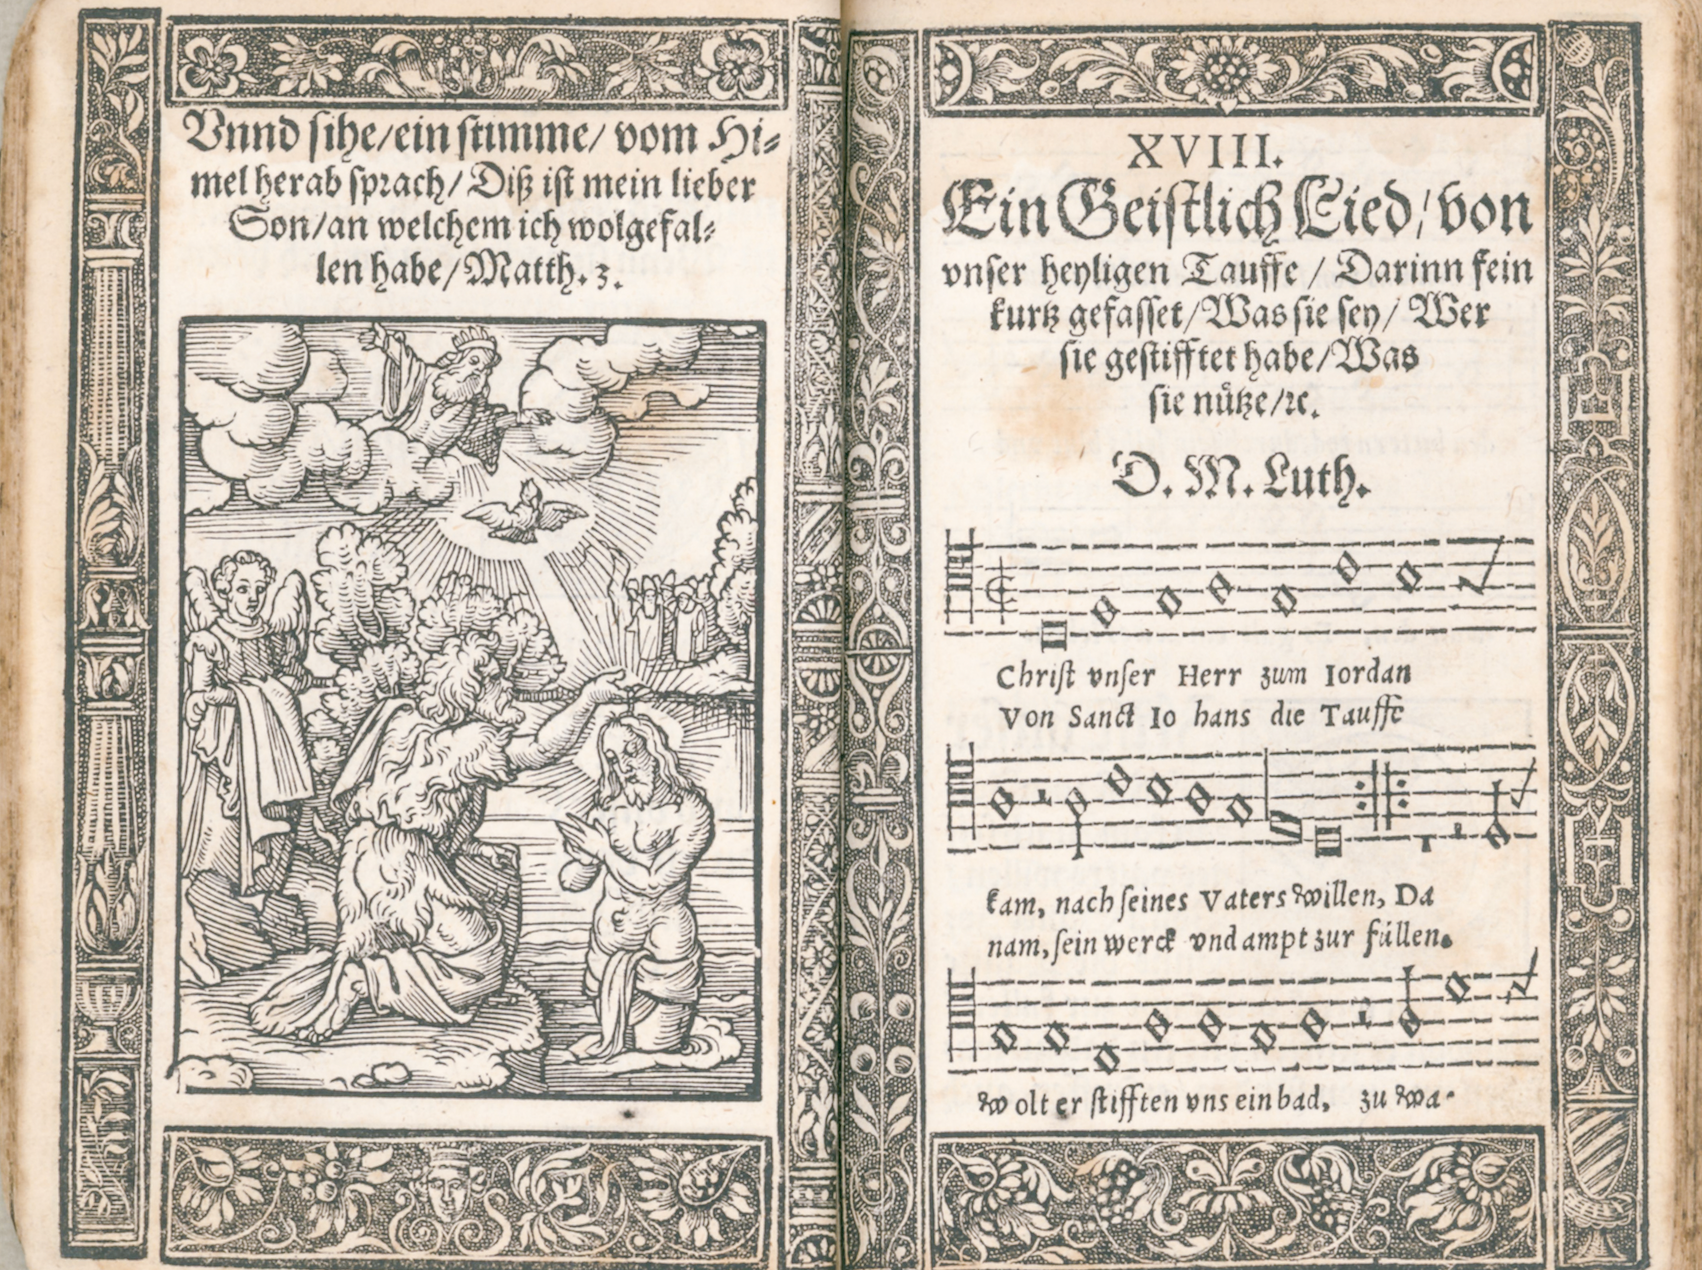 Vnnd sihe/ein stimme/ vom Hi=
mel herab sprach/ Diß ist mein lieber
Son/an welchem ich wolgefal=
len habe/Matth. 3.
XVIII.
Ein Geistlich Lied/ von
vnser heyligen Tauffe / Darinn fein
kurtz gefasset/Was sie sey/ Wer
sie gestifftet habe/Was
sie nuͤtze/ꝛc.
D. M. Luth.
Christ vnser Herr zum Iordan
Von Sanct Io hans die Tauffe
kam, nach seines Vaters willen, Da
nam, sein werck vnd ampt zur füllen.
wolt er stifften vns ein bad, zu wa-